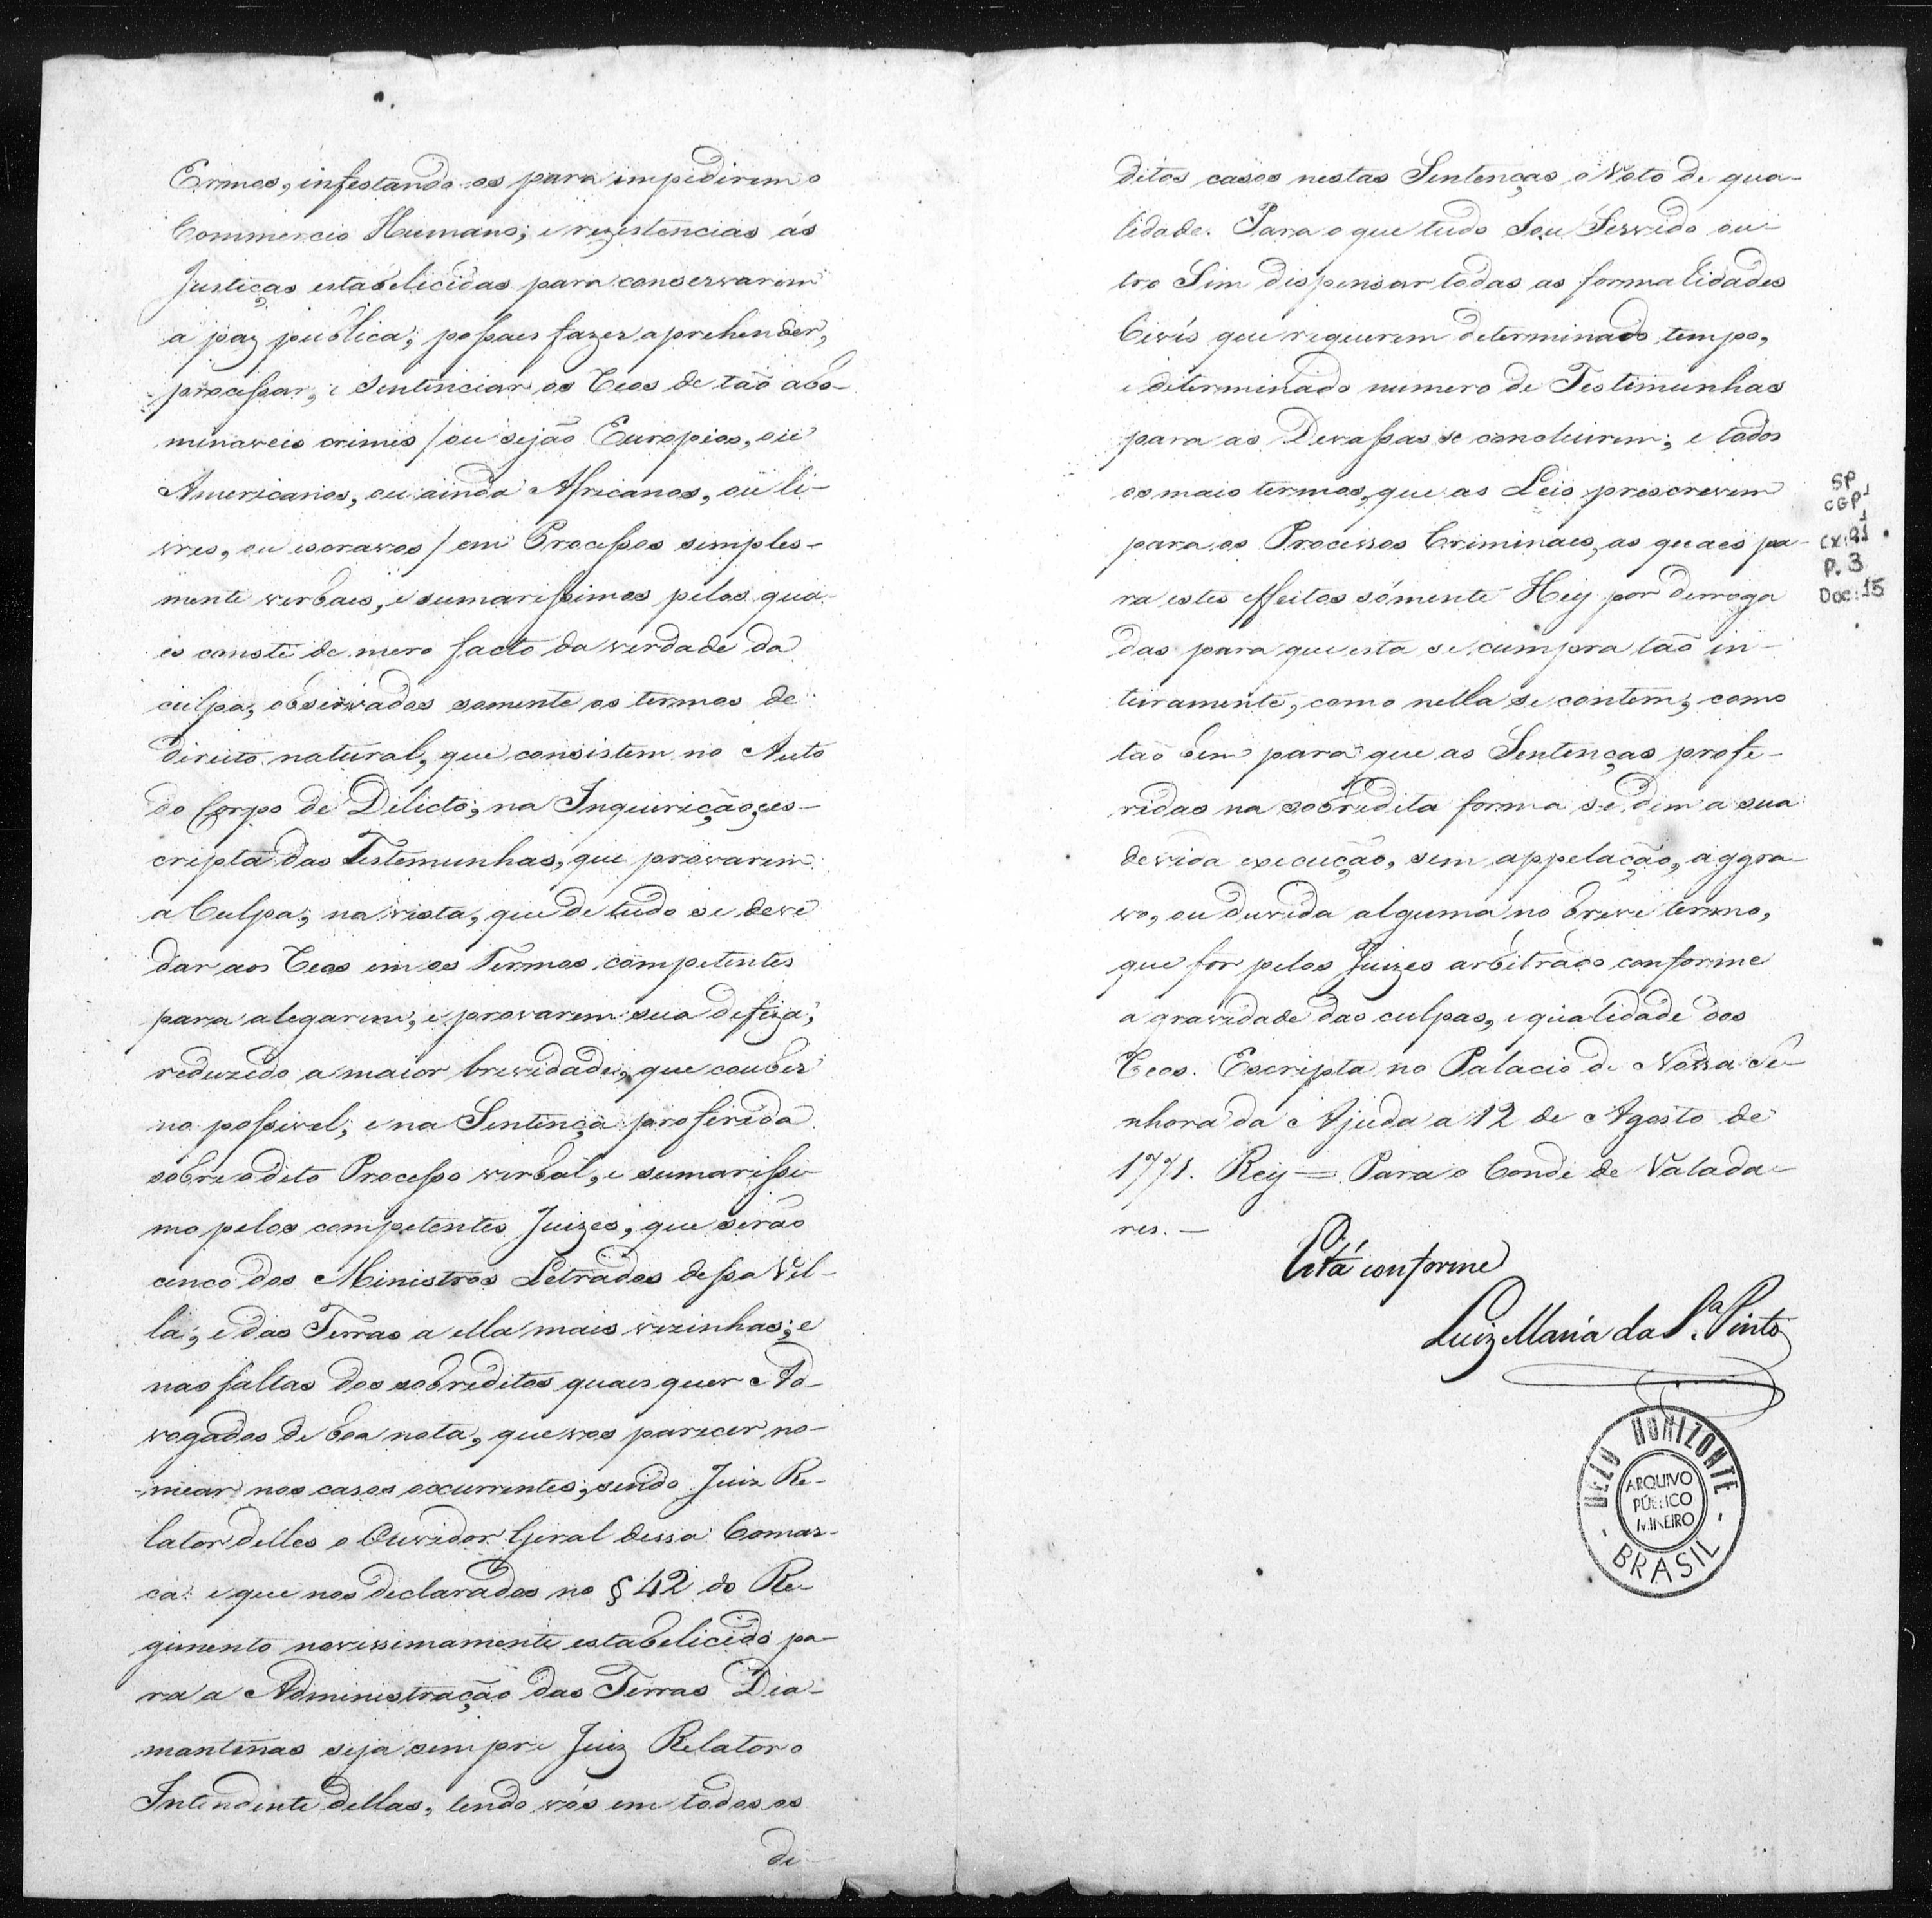 Ermos, infestando-os para impedirem o
Commercio Humano; e rezistencias ás
Justiças estabelicidas para conservarem
a paz publica; possaes fazer aprehender,
processar, e Sentenciar os Reos de taõ abo-
minaveis crimes / ou sejão Europeos, ou
Americanos, ou ainda Africanos, ou li-
vres, ou escravos / em Processos simples-
mente verbaes, e sumarissimos pelos qua-
es conste de mero facto da verdade da
culpa, observados somente os termos de
direito natural, que consistem no Auto
do Corpo de Delicto; na Inquirição es-
cripta das Testemunhas, que provarem
a Culpa; na vista, que de tudo se deve
dar aos Reos em os Termos competentes
para alegarem, e provarem sua defeza,
reduzido a maior brevidade, que couber
no possivel; e na Sentença proferida
sobre o dito Processo verbal, e sumarissi-
mo pelos competentes Juizes, que serão
cinco dos Ministros Letrados dessa Vil-
la, e das Terras a ella mais vezinhas; e
nas faltas dos sobreditos quaesquer Ad-
vogados de boa nota, que vos parecer no-
mear nos casos occurrentes; sendo Juiz Re-
lator delles o Ouvidor Geral dessa Comar-
ca: e que nos declarados no § 42 do Re-
gimento novissimamente estabelicido pa-
ra a Administração das Terras Dia-
mantinas seja sempre Juiz Relator o
Intendente dellas, tendo vós em todos os
di-
ditos casos nestas Sentenças o Voto de qua-
lidade. Para o que tudo Sou Servido ou-
tro Sim dispensar todas as formalidades
Civís que requerem determinado tempo,
e determinado numero de Testimunhas
para as Devassas se concluirem; e todos
os mais termos, que as Leis prescrevem
para os Processos Criminaes, as quaes pa-
ra estes effeitos sómente Hey por derroga
das para que esta se cumpra taõ in-
teiramente, como nella se contem, como
taõ bem para que as Sentenças profe-
ridas na sobredita forma se dem a sua
devida execução, sem appelação, aggra-
vo, ou duvida alguma no breve termo,
que for pelos Juizes arbitrado conforme
a gravidade das culpas, e qualidade dos
Reos. Escripta no Palacio de Nossa Se-
nhora da Ajuda a 12 de Agosto de
1771. Rey = Para o Conde de Valada-
res. —
Está conforme
Luiz Maria da S.ª Pinto
SP
CGP 1
CX: 01
P. 3
Doc: 15
BELO HORIZONTE
ARQUIVO
PÚBLICO
MINEIRO
- BRASIL -